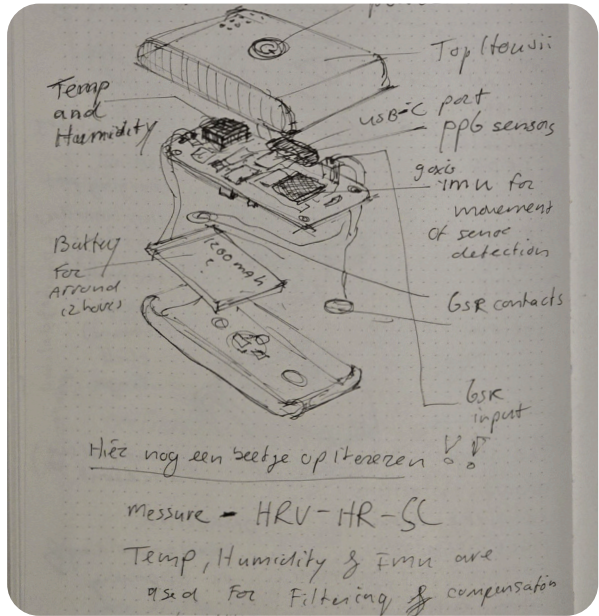 Top Housii
Temp
and
Humidity
USB-C port
PPG sensors
9 axis
IMU for
movement
of sense
detection
Battery
For
Arround
12 hours
1200 mAh
?
GSR contacts
GSR
input
Hier nog een beetje op itereren !!
Messure - HRV-HR-SC
Temp, Humidity & Imu are
used For Filtering & compensation